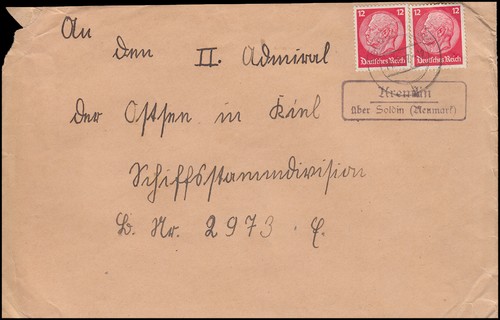 12 12
Deutsches Reich Deutsches Reich
An
den II. Admiral
der Ostsee in Kiel
Schiffsstammdivision
B. Nr. 2973 E.
über Soldin (Neumark)